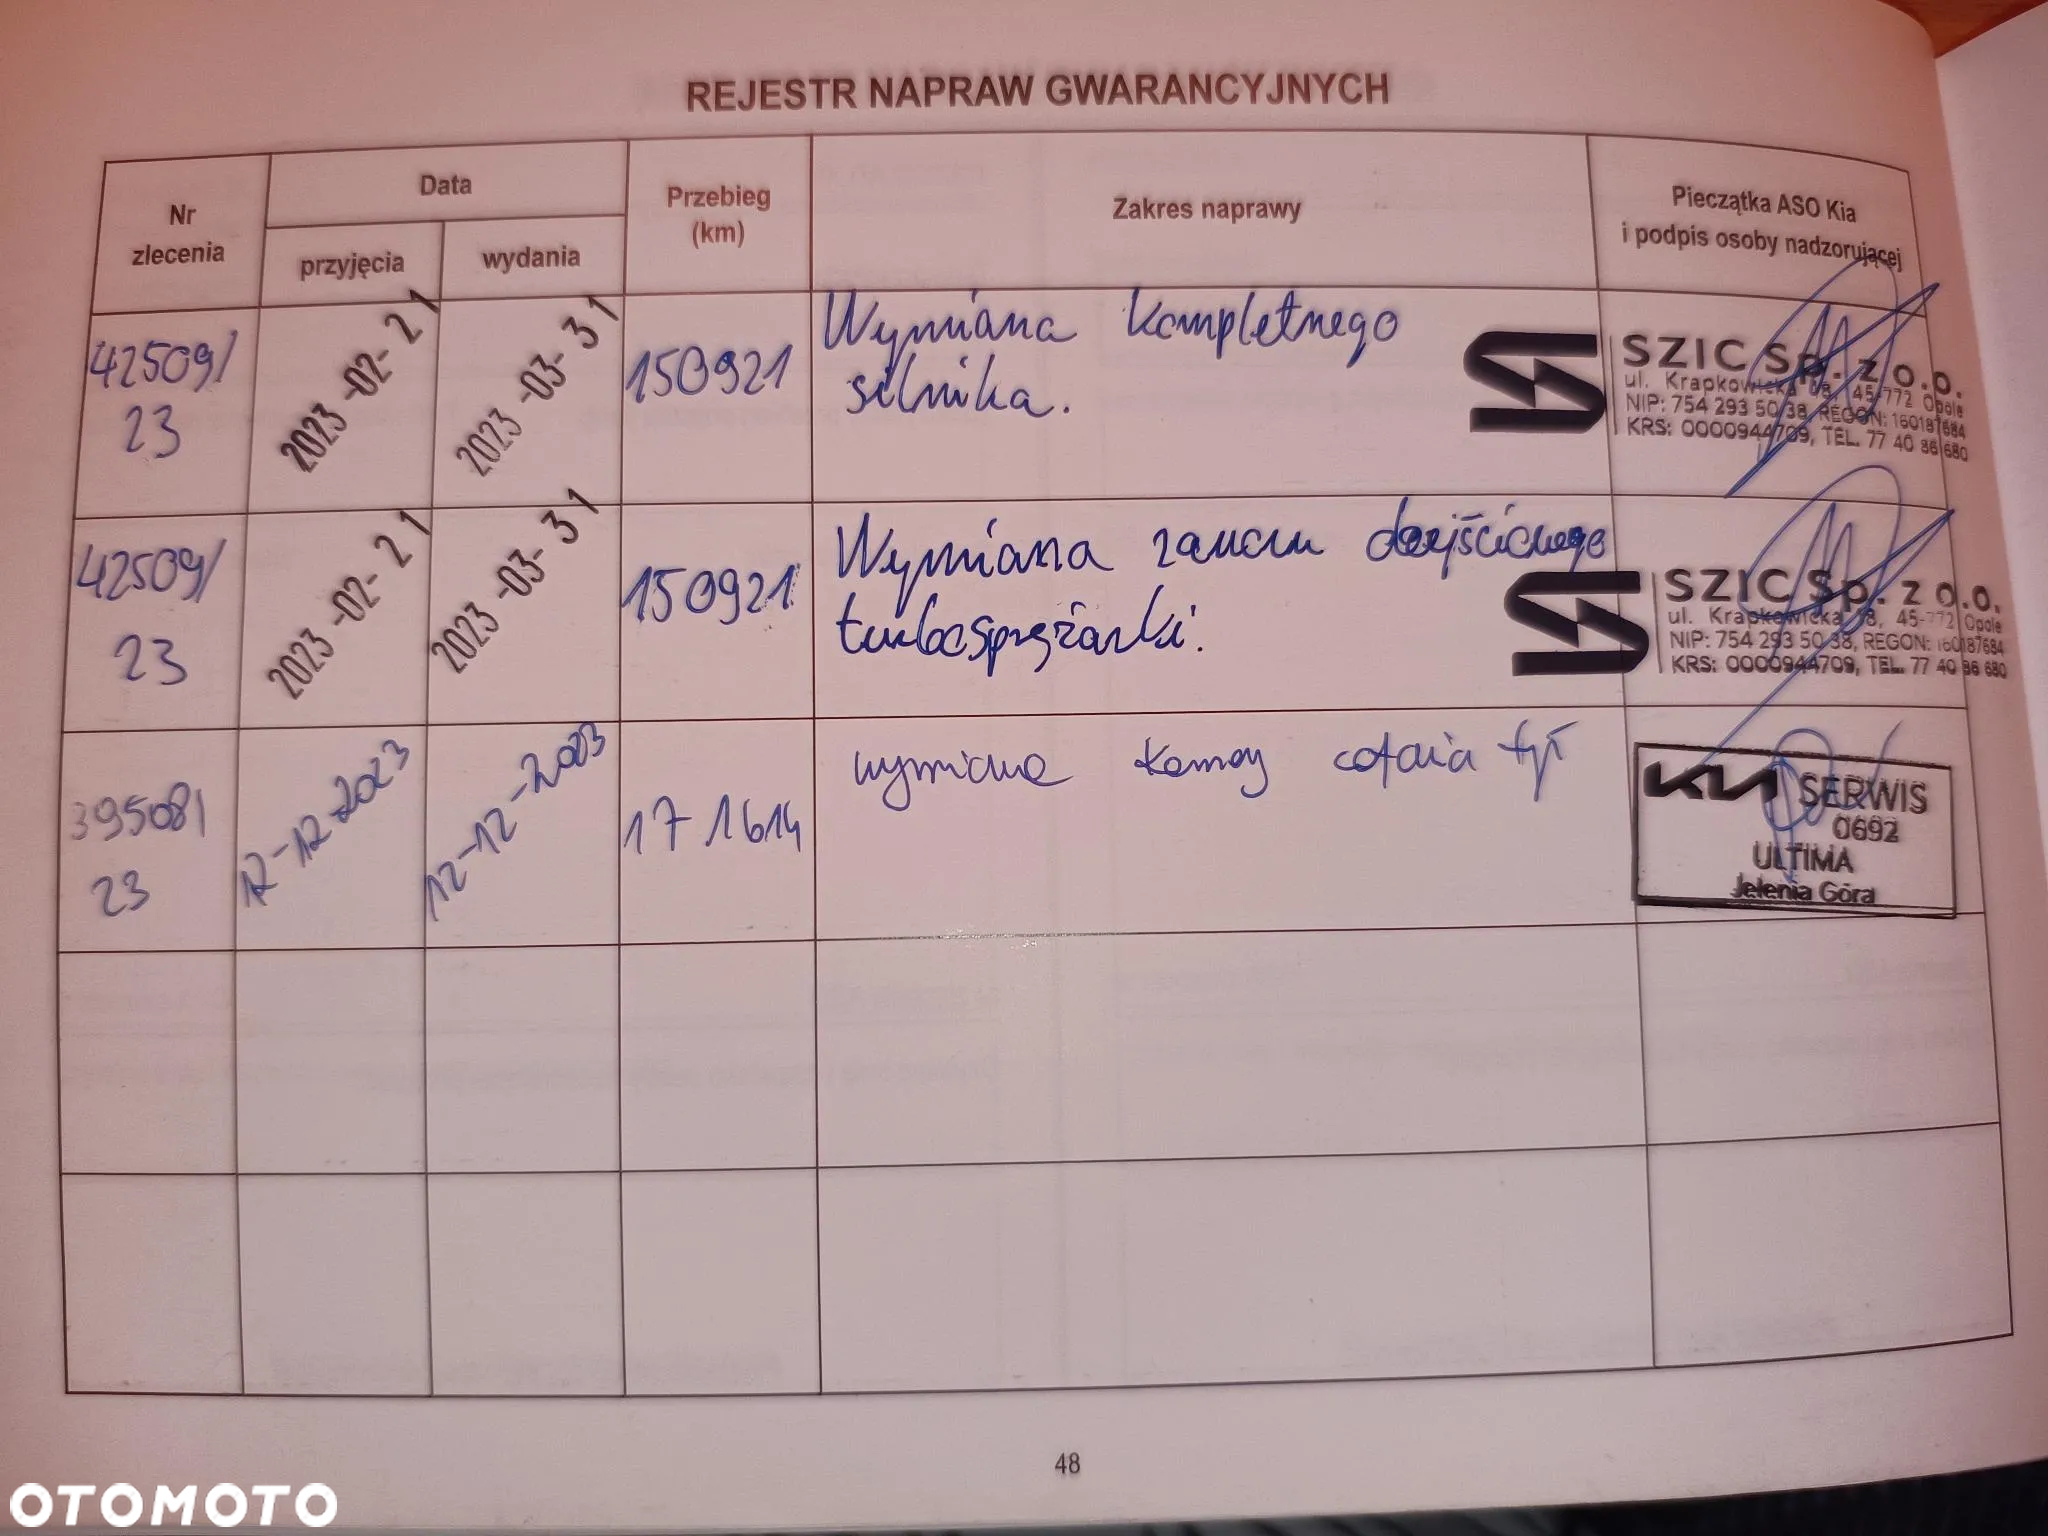 REJESTR NAPRAW GWARANCYJNYCH
Nr
zlecenia
Data
przyjęcia
wydania
Przebieg
(km)
Zakres naprawy
Pieczątka ASO Kia
i podpis osoby nadzorującej
42509/
23
2023-02-21
2023-03-31
150921
Wymiana kompletnego
silnika.
SZIC Sp. z o.o.
ul. Krapkowicka 08, 45-772 Opole
NIP: 754 293 50 38, REGON: 160187684
KRS: 0000944709, TEL. 77 40 86 680
42509/
23
2023-02-21
2023-03-31
150921
Wymiana zaworu dojściowego
turbosprężarki.
SZIC Sp. z o.o.
ul. Krapkowicka 8, 45-772 Opole
NIP: 754 293 50 38, REGON: 160187684
KRS: 0000944709, TEL. 77 40 86 680
395081
23
12-12-2023
12-12-2023
171614
wymiana kamery cofania tył
KIA SERWIS
0692
ULTIMA
Jelenia Góra
48
OTOMOTO